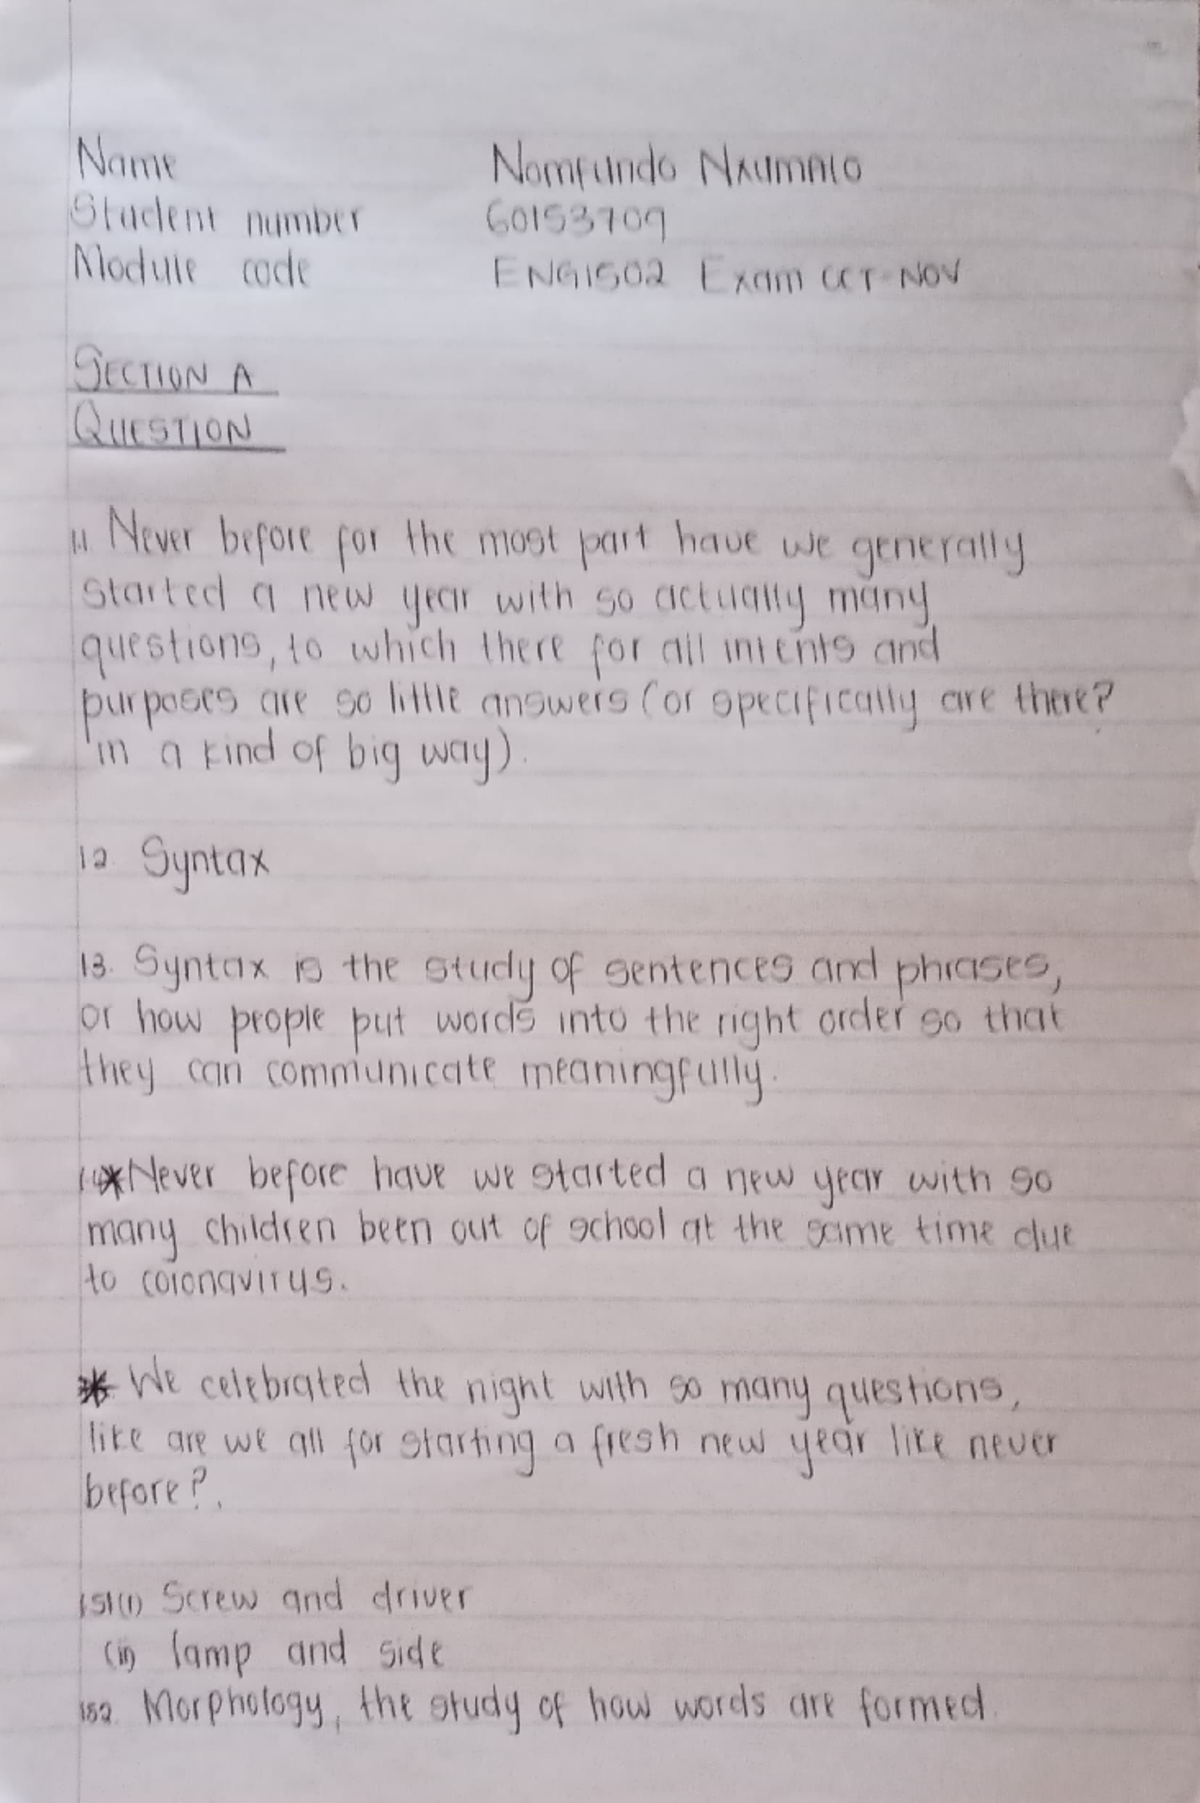 Name Nomfundo Nxumalo
Student number 60153709
Module code ENG1502 Exam OCT-NOV
SECTION A
QUESTION
1.1 Never before for the most part have we generally
started a new year with so actually many
questions, to which there for all intents and
purposes are so little answers (or specifically are there?
in a kind of big way).
1.2 Syntax
1.3. Syntax is the study of sentences and phrases,
or how people put words into the right order so that
they can communicate meaningfully.
1.4 * Never before have we started a new year with so
many children been out of school at the same time due
to coronavirus.
* We celebrated the night with so many questions,
like are we all for starting a fresh new year like never
before?.
1.5.1 (i) Screw and driver
(ii) lamp and side
1.5.2. Morphology, the study of how words are formed.